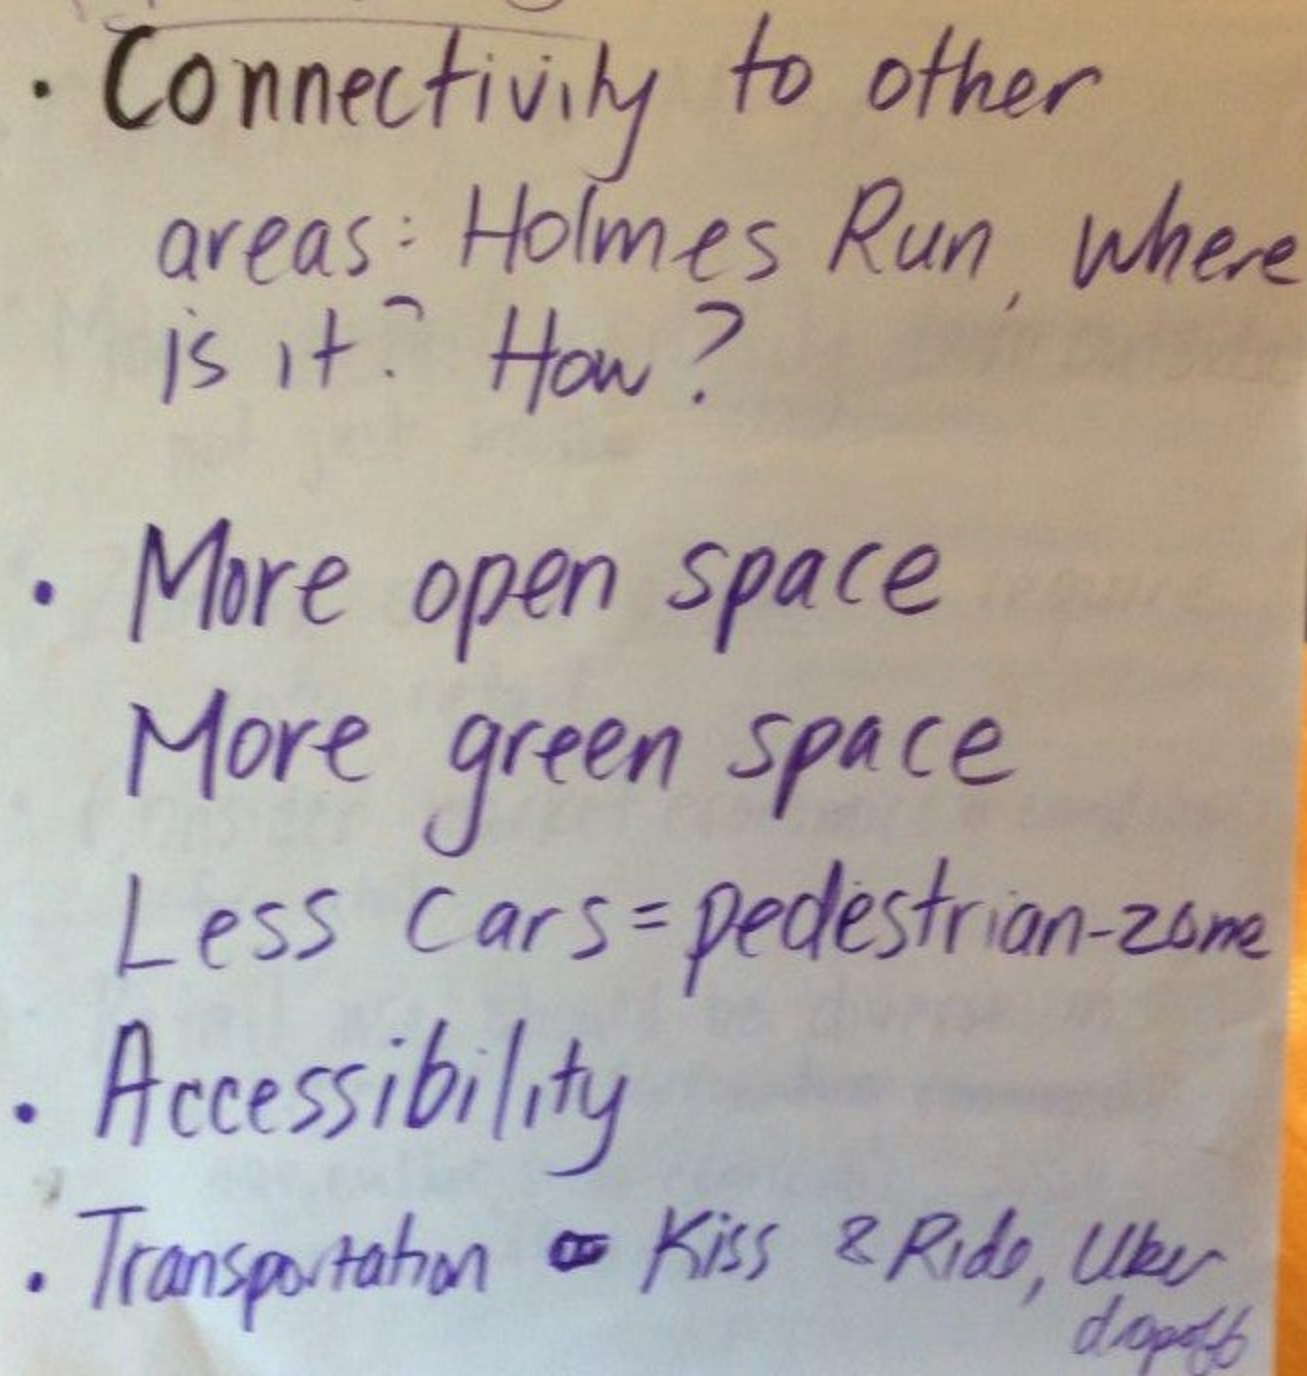 • Connectivity to other
areas: Holmes Run, where
is it? How?
• More open space
More green space
Less cars = pedestrian-zone
• Accessibility
• Transportation - Kiss & Ride, Uber
dropoff